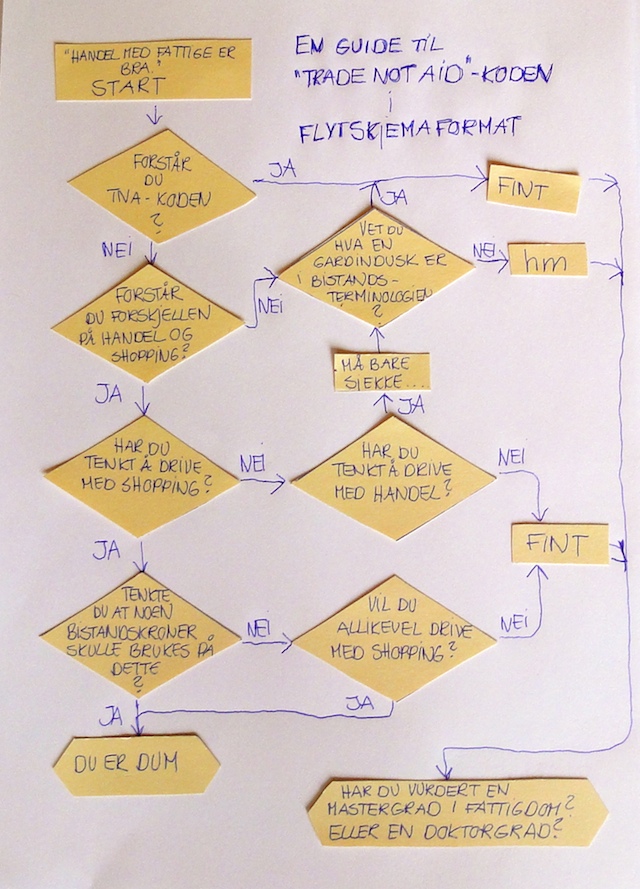 "HANDEL MED FATTIGE ER
BRA."
START
EN GUIDE TIL
"TRADE NOT AID"-KODEN
i
FLYTSKJEMAFORMAT
FORSTÅR
DU
TNA-KODEN
?
JA
FINT
NEI
JA
VET DU
HVA EN
GARDINDUSK ER
I BISTANDS-
TERMINOLOGIEN
?
NEI
hm
FORSTÅR
DU FORSKJELLEN
PÅ HANDEL OG
SHOPPING?
NEI
MÅ BARE
SJEKKE...
JA
JA
HAR DU
TENKT Å DRIVE
MED SHOPPING?
NEI
HAR DU
TENKT Å DRIVE
MED HANDEL?
NEI
FINT
JA
TENKTE
DU AT NOEN
BISTANDSKRONER
SKULLE BRUKES PÅ
DETTE
?
NEI
VIL DU
ALLIKEVEL DRIVE
MED SHOPPING?
NEI
JA
JA
DU ER DUM
HAR DU VURDERT EN
MASTERGRAD I FATTIGDOM?
ELLER EN DOKTORGRAD?